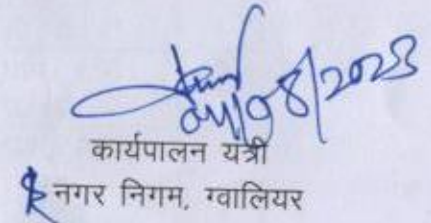 04/08/2023
कार्यपालन यंत्री
नगर निगम, ग्वालियर